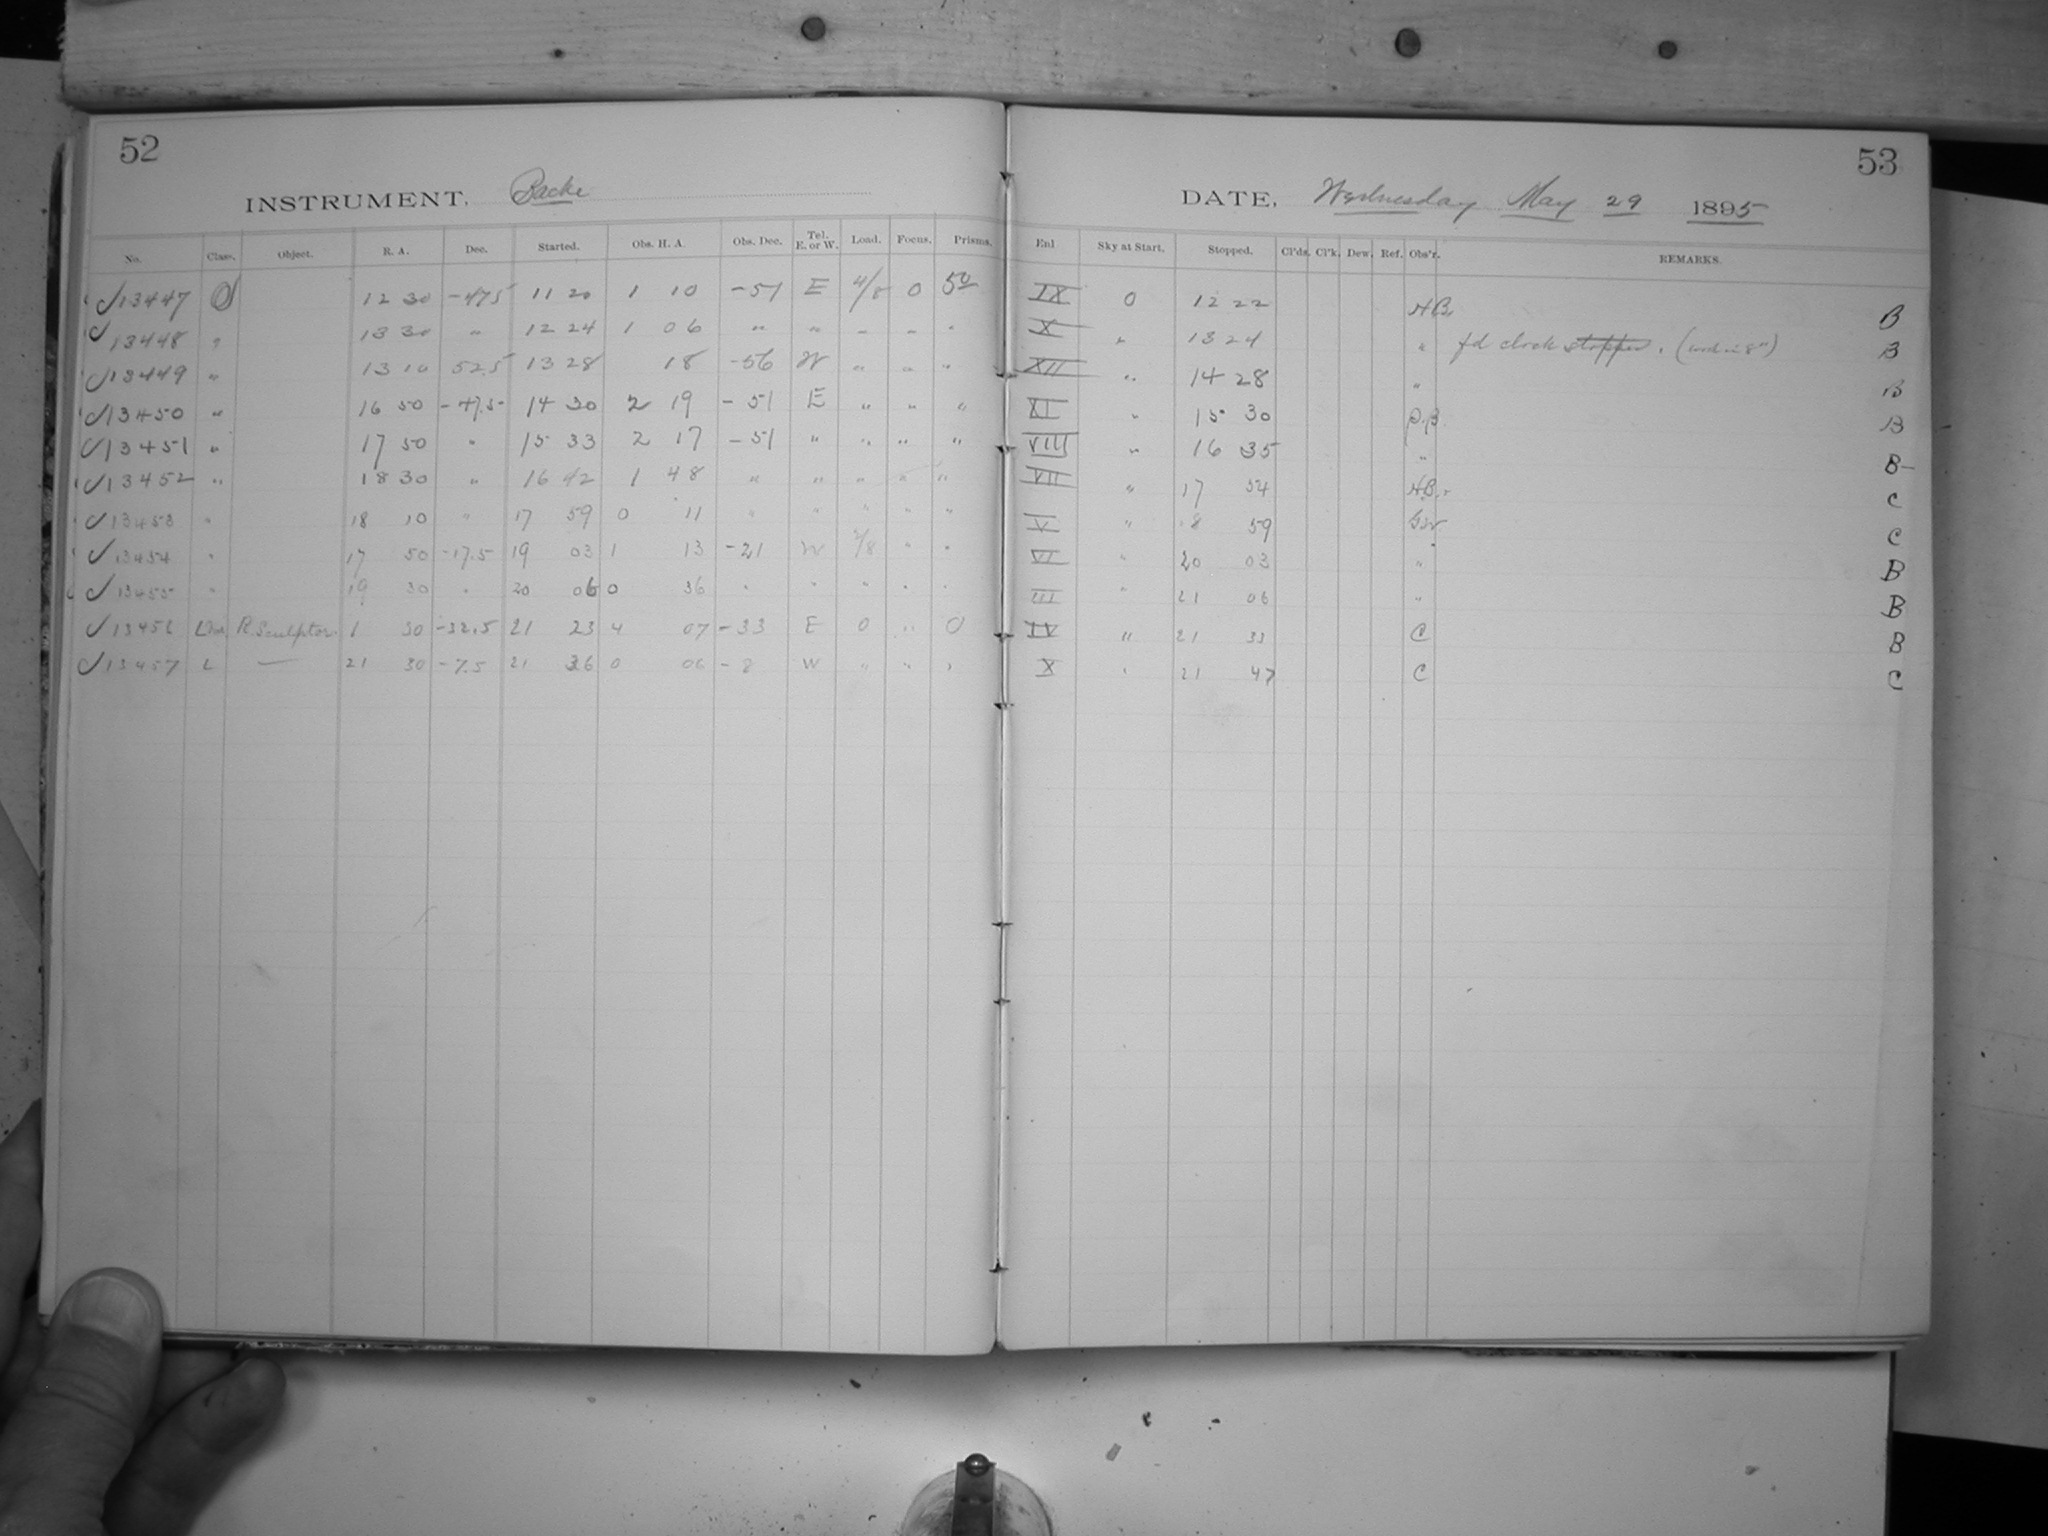 52
53
INSTRUMENT, Bache
DATE, Wednesday May 29 1895
No. Class. Object. R. A. Dec. Started. Obs. H. A. Obs. Dec. Tel. E. or W. Load. Focus. Prisms. Enl Sky at Start. Stopped. Cl'ds. Cl'k. Dew. Ref. Obs'r. REMARKS.
13447 O 12 30 -47.5 11 20 1 10 -51 E 4/8 0 50 IX 0 12 22 HB. B
13448 " 13 30 " 12 24 1 06 " " " " " X " 13 24 " fd clock B
13449 " 13 10 52.5 13 28 18 -56 W " " " XII " 14 28 " B
13450 " 16 50 -47.5 14 30 2 19 -51 E " " " XI " 15 30 B
13451 " 17 50 " 15 33 2 17 -51 " " " " VIII " 16 35 " B-
13452 " 18 30 " 16 42 1 48 " " " " " VII " 17 54 HB. C
13453 " 18 10 " 17 59 0 11 " " " " " V " 8 59 C
13454 " 17 50 -17.5 19 03 1 13 -21 W 2/8 " " VI " 20 03 " B
13455 " 19 30 " 20 06 0 36 " " " " " III " 21 06 " B
13456 R Sculptor. 1 30 -32.5 21 23 4 07 -33 E 0 " 0 IV " 21 33 C B
13457 L — 21 30 -7.5 21 36 0 06 -8 W " " " X " 21 47 C C